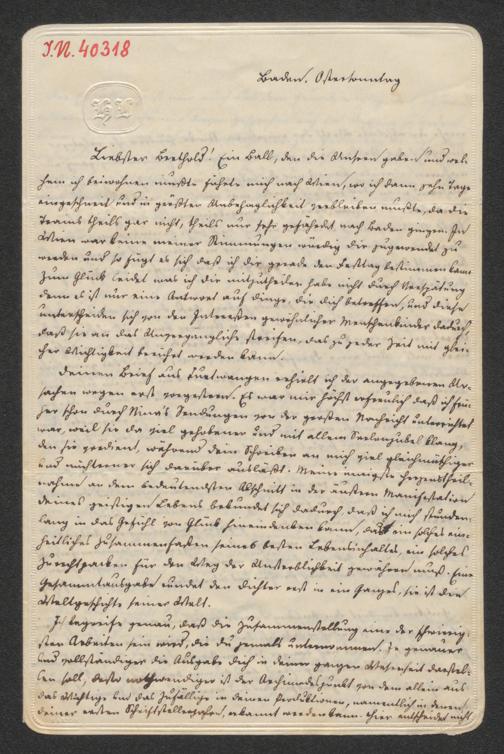 I.N. 40318
Baden. Ostersonntag
Liebster Berthold! Ein Ball, den die Unsern gaben und wel-
chem ich beiwohnen mußte führte mich nach Wien, wo ich dann zehn Tage
eingeschneit und in größter Unbehaglichkeit verbleiben mußte, da die
Trains theils gar nicht, theils nur sehr gefährdet nach Baden gingen. In
Wien war keine meiner Stimmungen würdig dir zugewendet zu
werden und so fügt es sich daß ich dir gerade den Festtag bestimmen kann
Zum Glück leidet was ich dir mitzutheilen habe nicht durch Verspätung
denn es ist nur eine Antwort auf Dinge, die dich betreffen, und diese
unterscheiden sich von den Interessen gewöhnlicher Menschenkinder dadurch
daß sie an das Unvergängliche streifen, das zu jeder Zeit mit glei-
cher Wichtigkeit berührt werden kann.
Deinen Brief aus Furtwangen erhielt ich der angegebenen Ur-
sachen wegen erst vorgestern. Es war mir höchst erfreulich daß ich frü-
her schon durch Nina's Sendungen von der großen Nachricht unterrichtet
war, weil sie da viel gehobener und mit allem Seelenjubel klang,
den sie verdient, während dein Schreiben an mich viel gleichmüthiger
und nüchterner sich darüber ausläßt. Meine innigste Herzenstheil-
nahme an dem bedeutendsten Abschnitt in der äußern Manifestation
deines geistigen Lebens bekundet sich dadurch, daß ich mich stunden
lang in das Gefühl von Glück hineindenken kann, das ein solches ein-
heitliches Zusammenfassen seines besten Lebensinhalts, ein solches
Zurechtpacken für den Weg der Unsterblichkeit gewähren muß. Eine
Gesammtausgabe rundet den Dichter erst in ein Ganzes, sie ist die
Weltgeschichte seiner Welt.
Ich begreife genau, daß die Zusammenstellung eine der schwierig-
sten Arbeiten sein wird, die du jemals unternommen. Je genauer
und vollständiger die Ausgabe dich in deiner ganzen Wesenheit darstel-
len soll, desto nothwendiger ist der Archimedespunkt von dem allein aus
das Wichtige und das Zufällige in deinen Produktionen, namentlich in denen
deiner ersten Schriftstellerjahre, erkannt werden kann. Hier entscheidet nicht